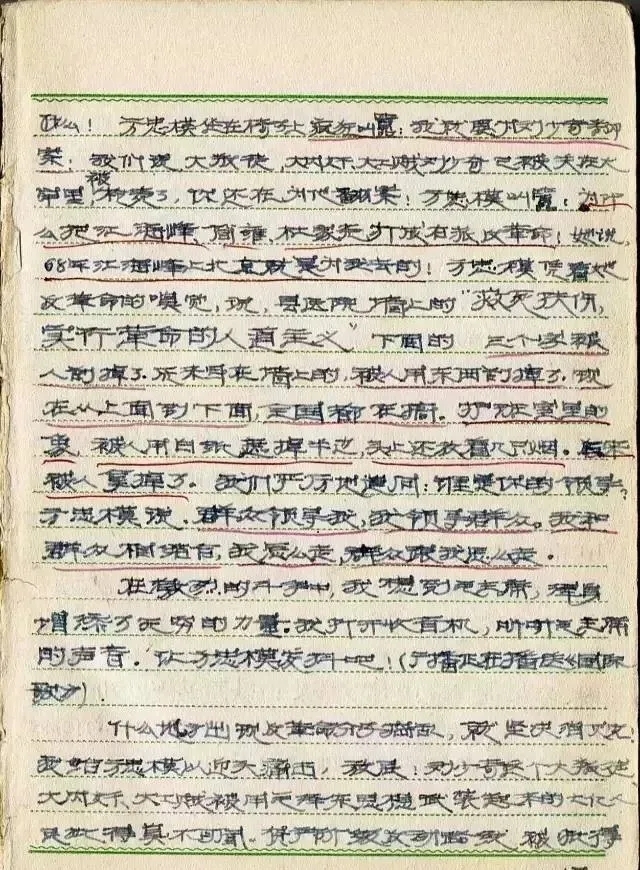 什么！方忠模坐在椅子上疯狂叫嚣：我就要为刘少奇翻
案！我们说大叛徒，大内奸、大工贼刘少奇已被关在大
牢里，被 了，你还在为他翻案！方忠模叫嚣：为什
么把江海峰、 打成右派反革命！她说，
68年江海峰上北京就是为我去的！方忠模凭着她
反革命的嗅觉，说，县医院墙上的“救死扶伤，
实行革命的人道主义”下面的 三个字被
人剜掉了。原来写在墙上的，被人用东西剜掉了。现
在从上面到下面，全国都在搞。 室里的
象，被人用白纸遮掉半边，头上还放着几只烟。后来
被人拿掉了。我们严厉地追问：谁是你的领导？
方忠模说，群众领导我，我领导群众。我和
群众相结合，我怎么走，群众跟我怎么走。
在 烈的斗争中，我想到毛主席，浑身
增添了无穷的力量。我打开收音机，听听毛主席
的声音。让方忠模发抖吧！（广播正在播送《国际
歌》）.
什么地方出现反革命分子捣乱，就坚决消灭之！
我给方忠模以迎头痛击，我说：刘少奇这个大叛徒、
大内奸、大工贼被用毛泽东思想武装起来的七亿人
民批得臭不可闻。资产阶级反动路线 被批得